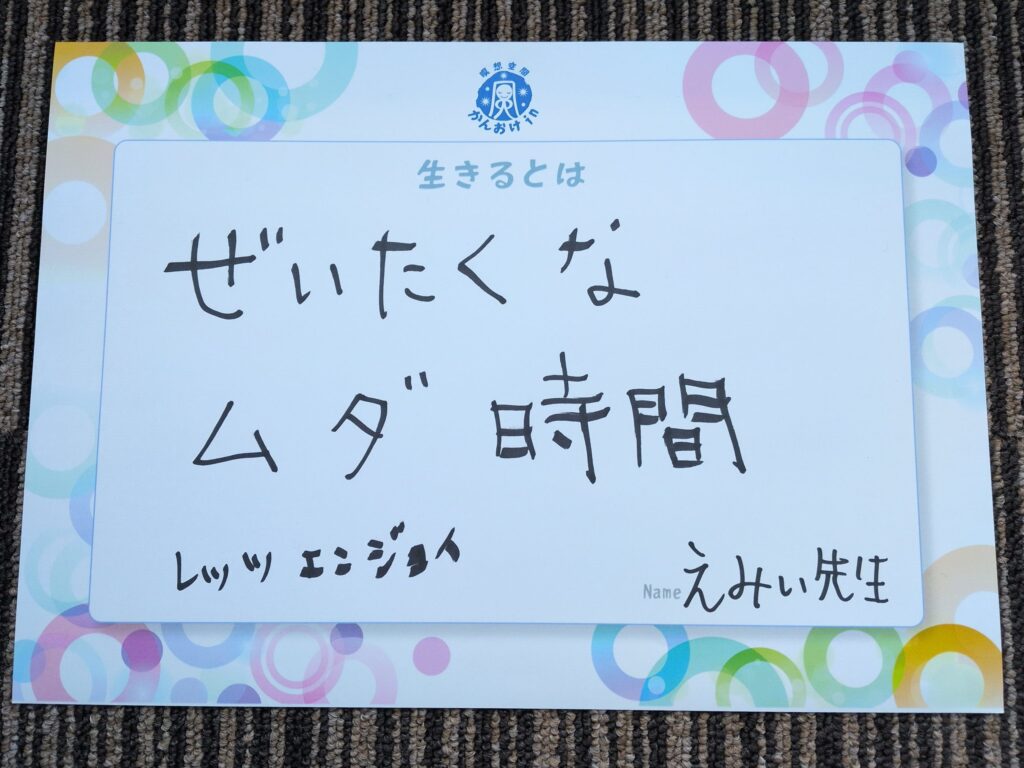 瞑想空間
かんおけin
生きるとは
ぜいたくな
ムダ時間
レッツエンジョイ
Name えみぃ先生